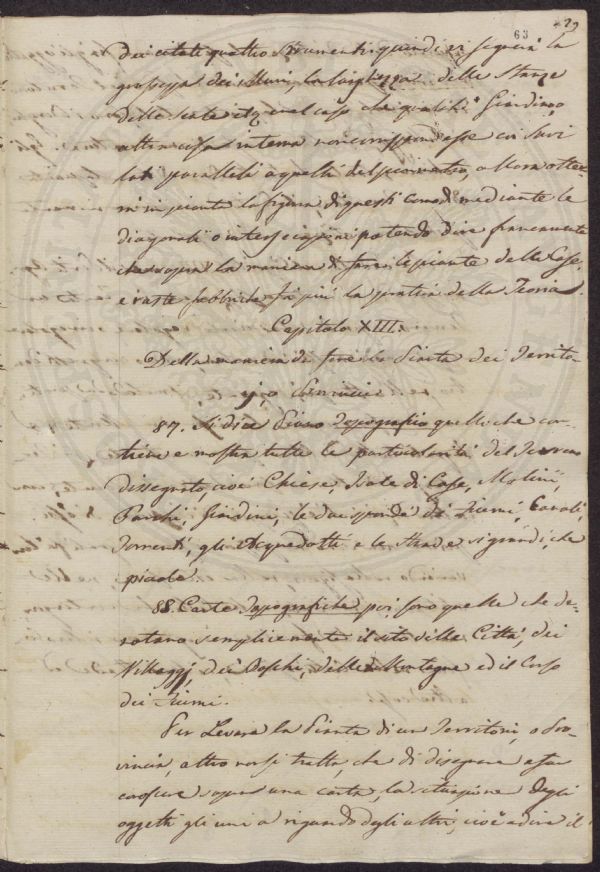 63 29
dei citati quattro Strumenti, quindi si segnerà la
grossezza dei Muri, la larghezza delle Stanze
delle Scale etc. nel caso che qualche Giardino,
altra cosa interna non corrispondesse coi suoi
lati paralleli a quelli del perimetro, allora otter-
rà in pianta la figura di questi comodi mediante le
diagonali o intersecazioni potendo dire francamente
che sopra la maniera di fare le piante delle Case,
e vaste fabbriche fà più la pratica della Teoria.
Capitolo XIII.
Della maniera di fare la Pianta dei Territo-
rj, o Provincie
87. Si dice Piano Topografico quello che con-
tiene e mostra tutte le particolarità del Terreno
dissegnato, cioè Chiese, Isole di Case, Molini,
Parchi, Giardini, le due sponde de Fiumi, Canali,
Torrenti, gli Acquedotti e le Strade sì grandi, che
picole
88. Carte Topografiche poi, sono quelle che de-
notano semplicemente il sito delle Città, dei
Villaggj, dei Boschi, delle Montagne ed il Corso
dei Fiumi.
Per Levare la Pianta di un Territorio, o Pro-
vincia, altro non si tratta, che di disegnare e far
conoscere sopra una carta, la situazione degli
oggetti gli uni a riguardo degli altri, cioè a dire il